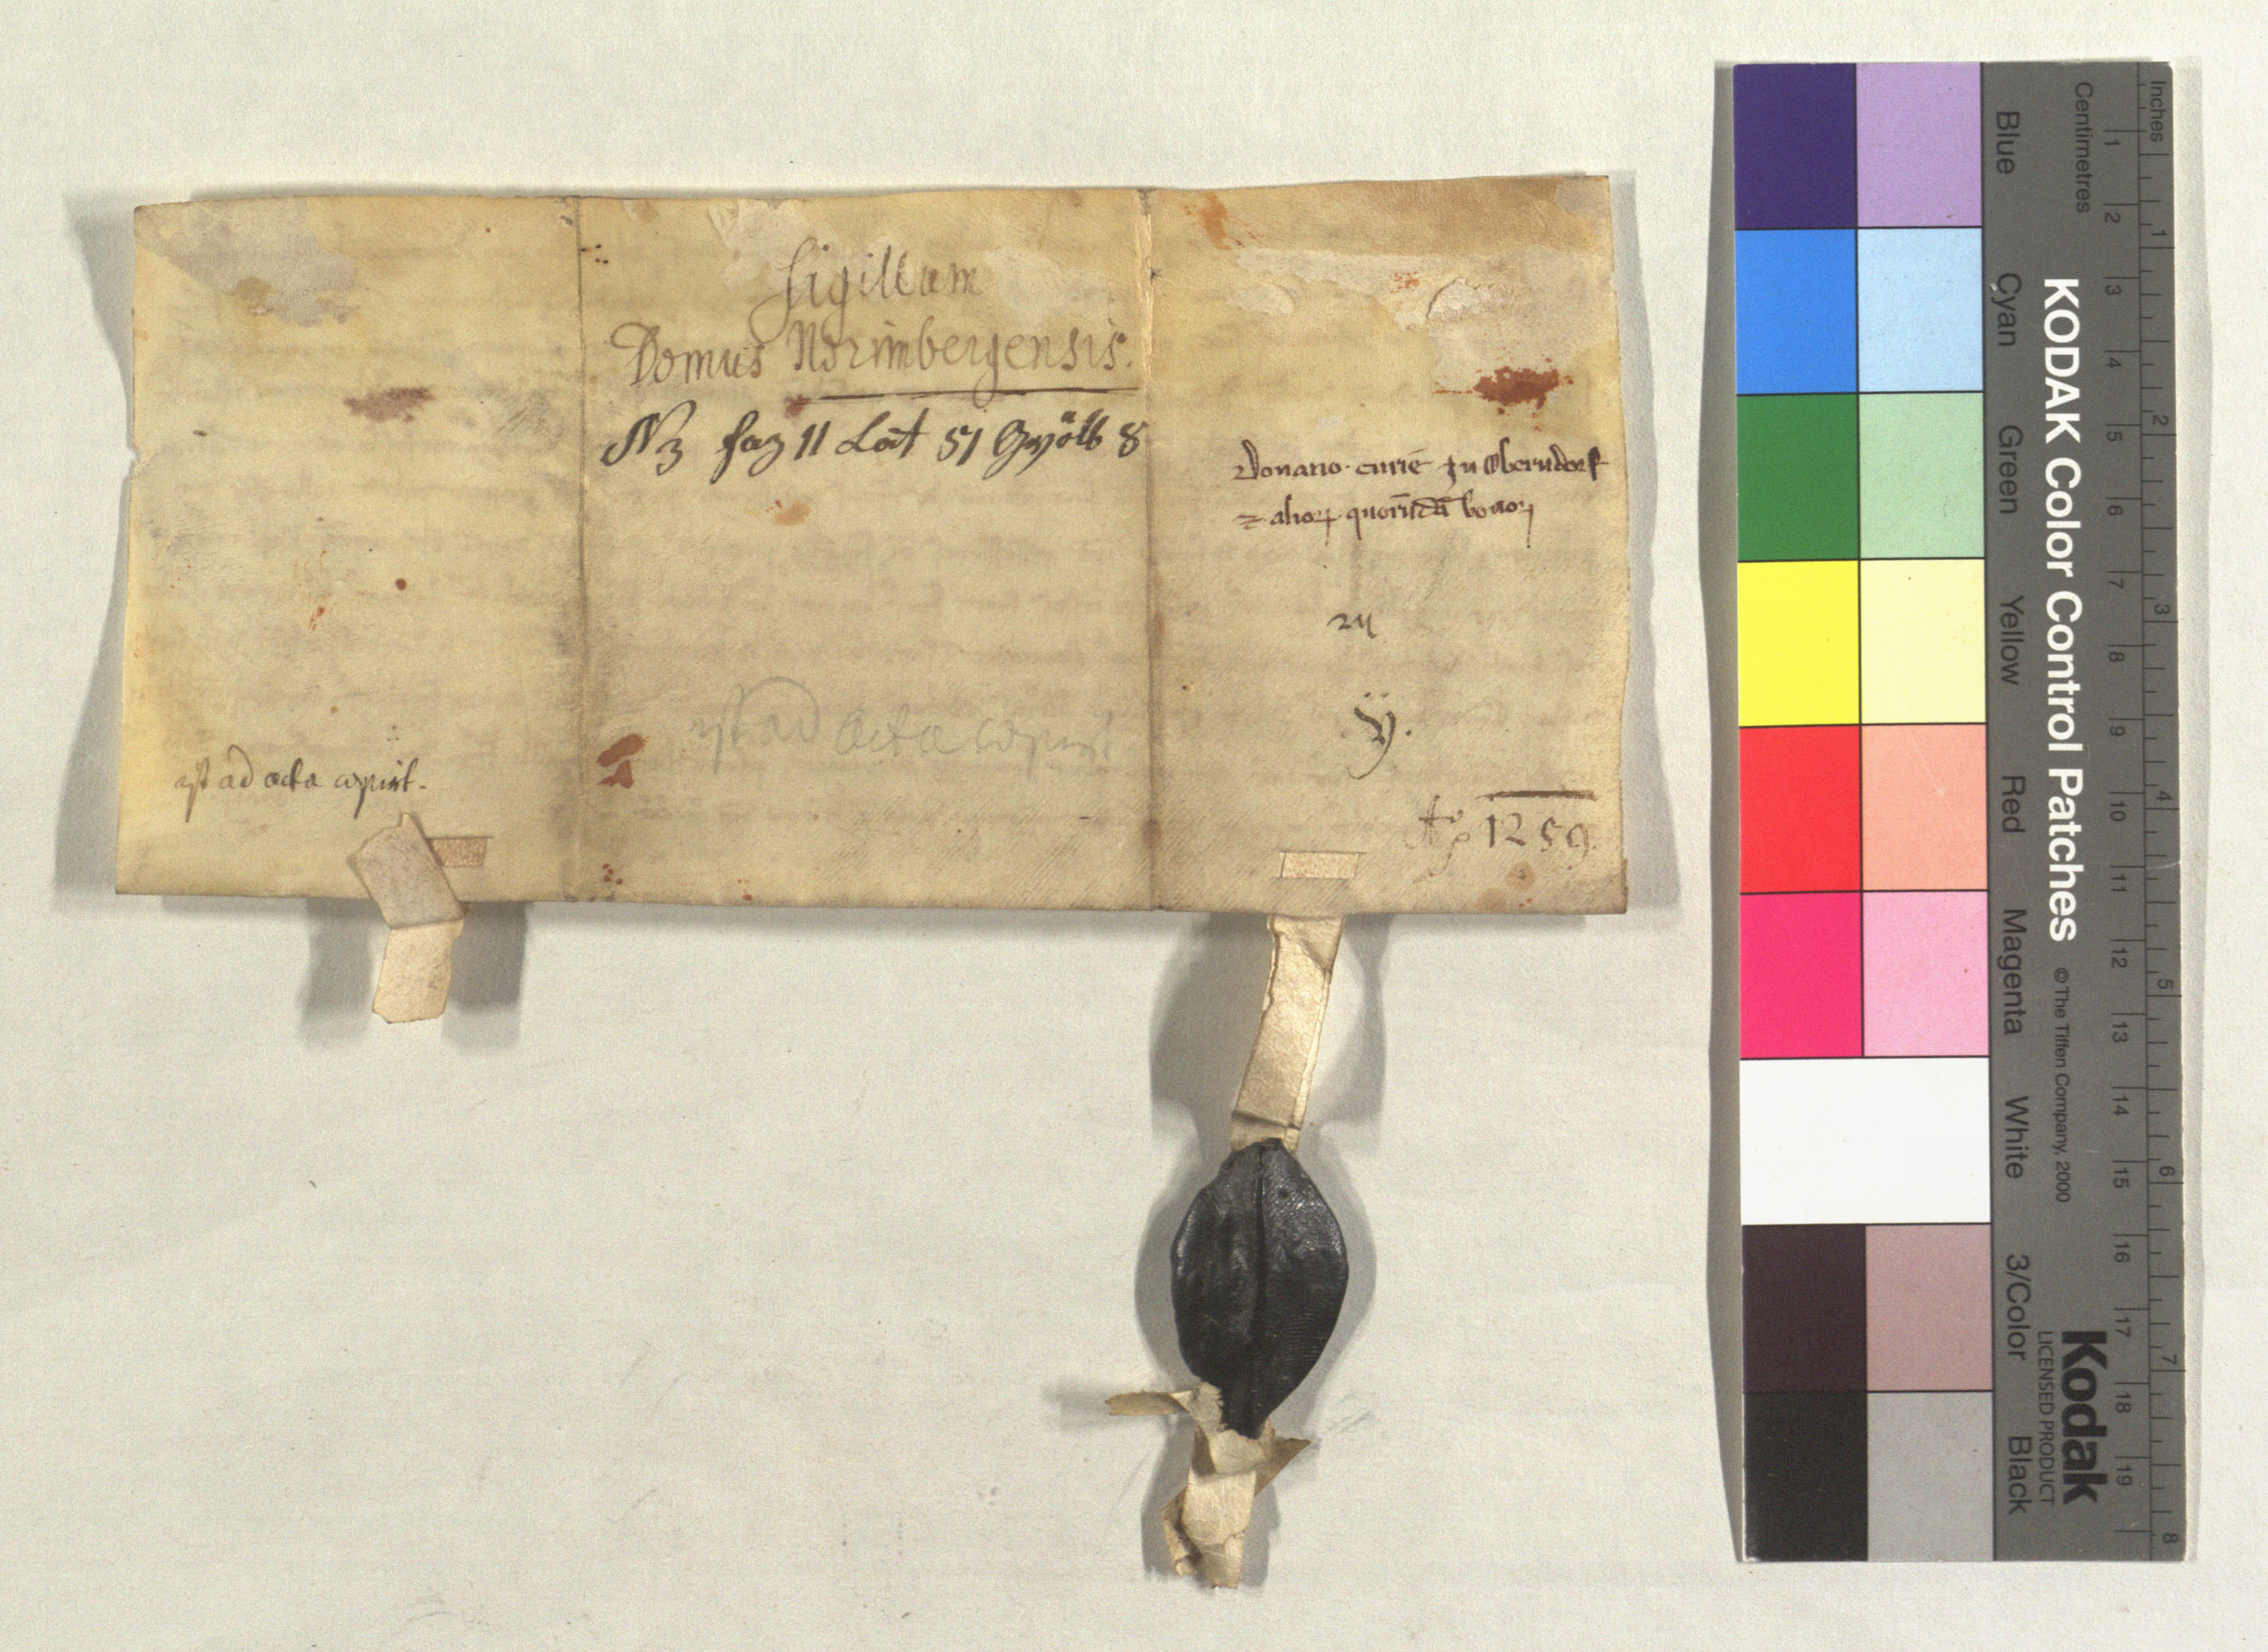 Sigillum
Domus Norimbergensis.
N 3 faz 11 Lat 51 Gwölb 8
Donatio curie zu Oberndorf
⁊ alioꝝ quorūdā bonoꝝ
ist ad acta copirt
ist ad acta copirt.
Aō 1259.
KODAK Color Control Patches
© The Tiffen Company, 2000
Kodak
LICENSED PRODUCT
Blue
Cyan
Green
Yellow
Red
Magenta
White
3/Color
Black
Centimetres
1 2 3 4 5 6 7 8 9 10 11 12 13 14 15 16 17 18 19
Inches
1 2 3 4 5 6 7 8